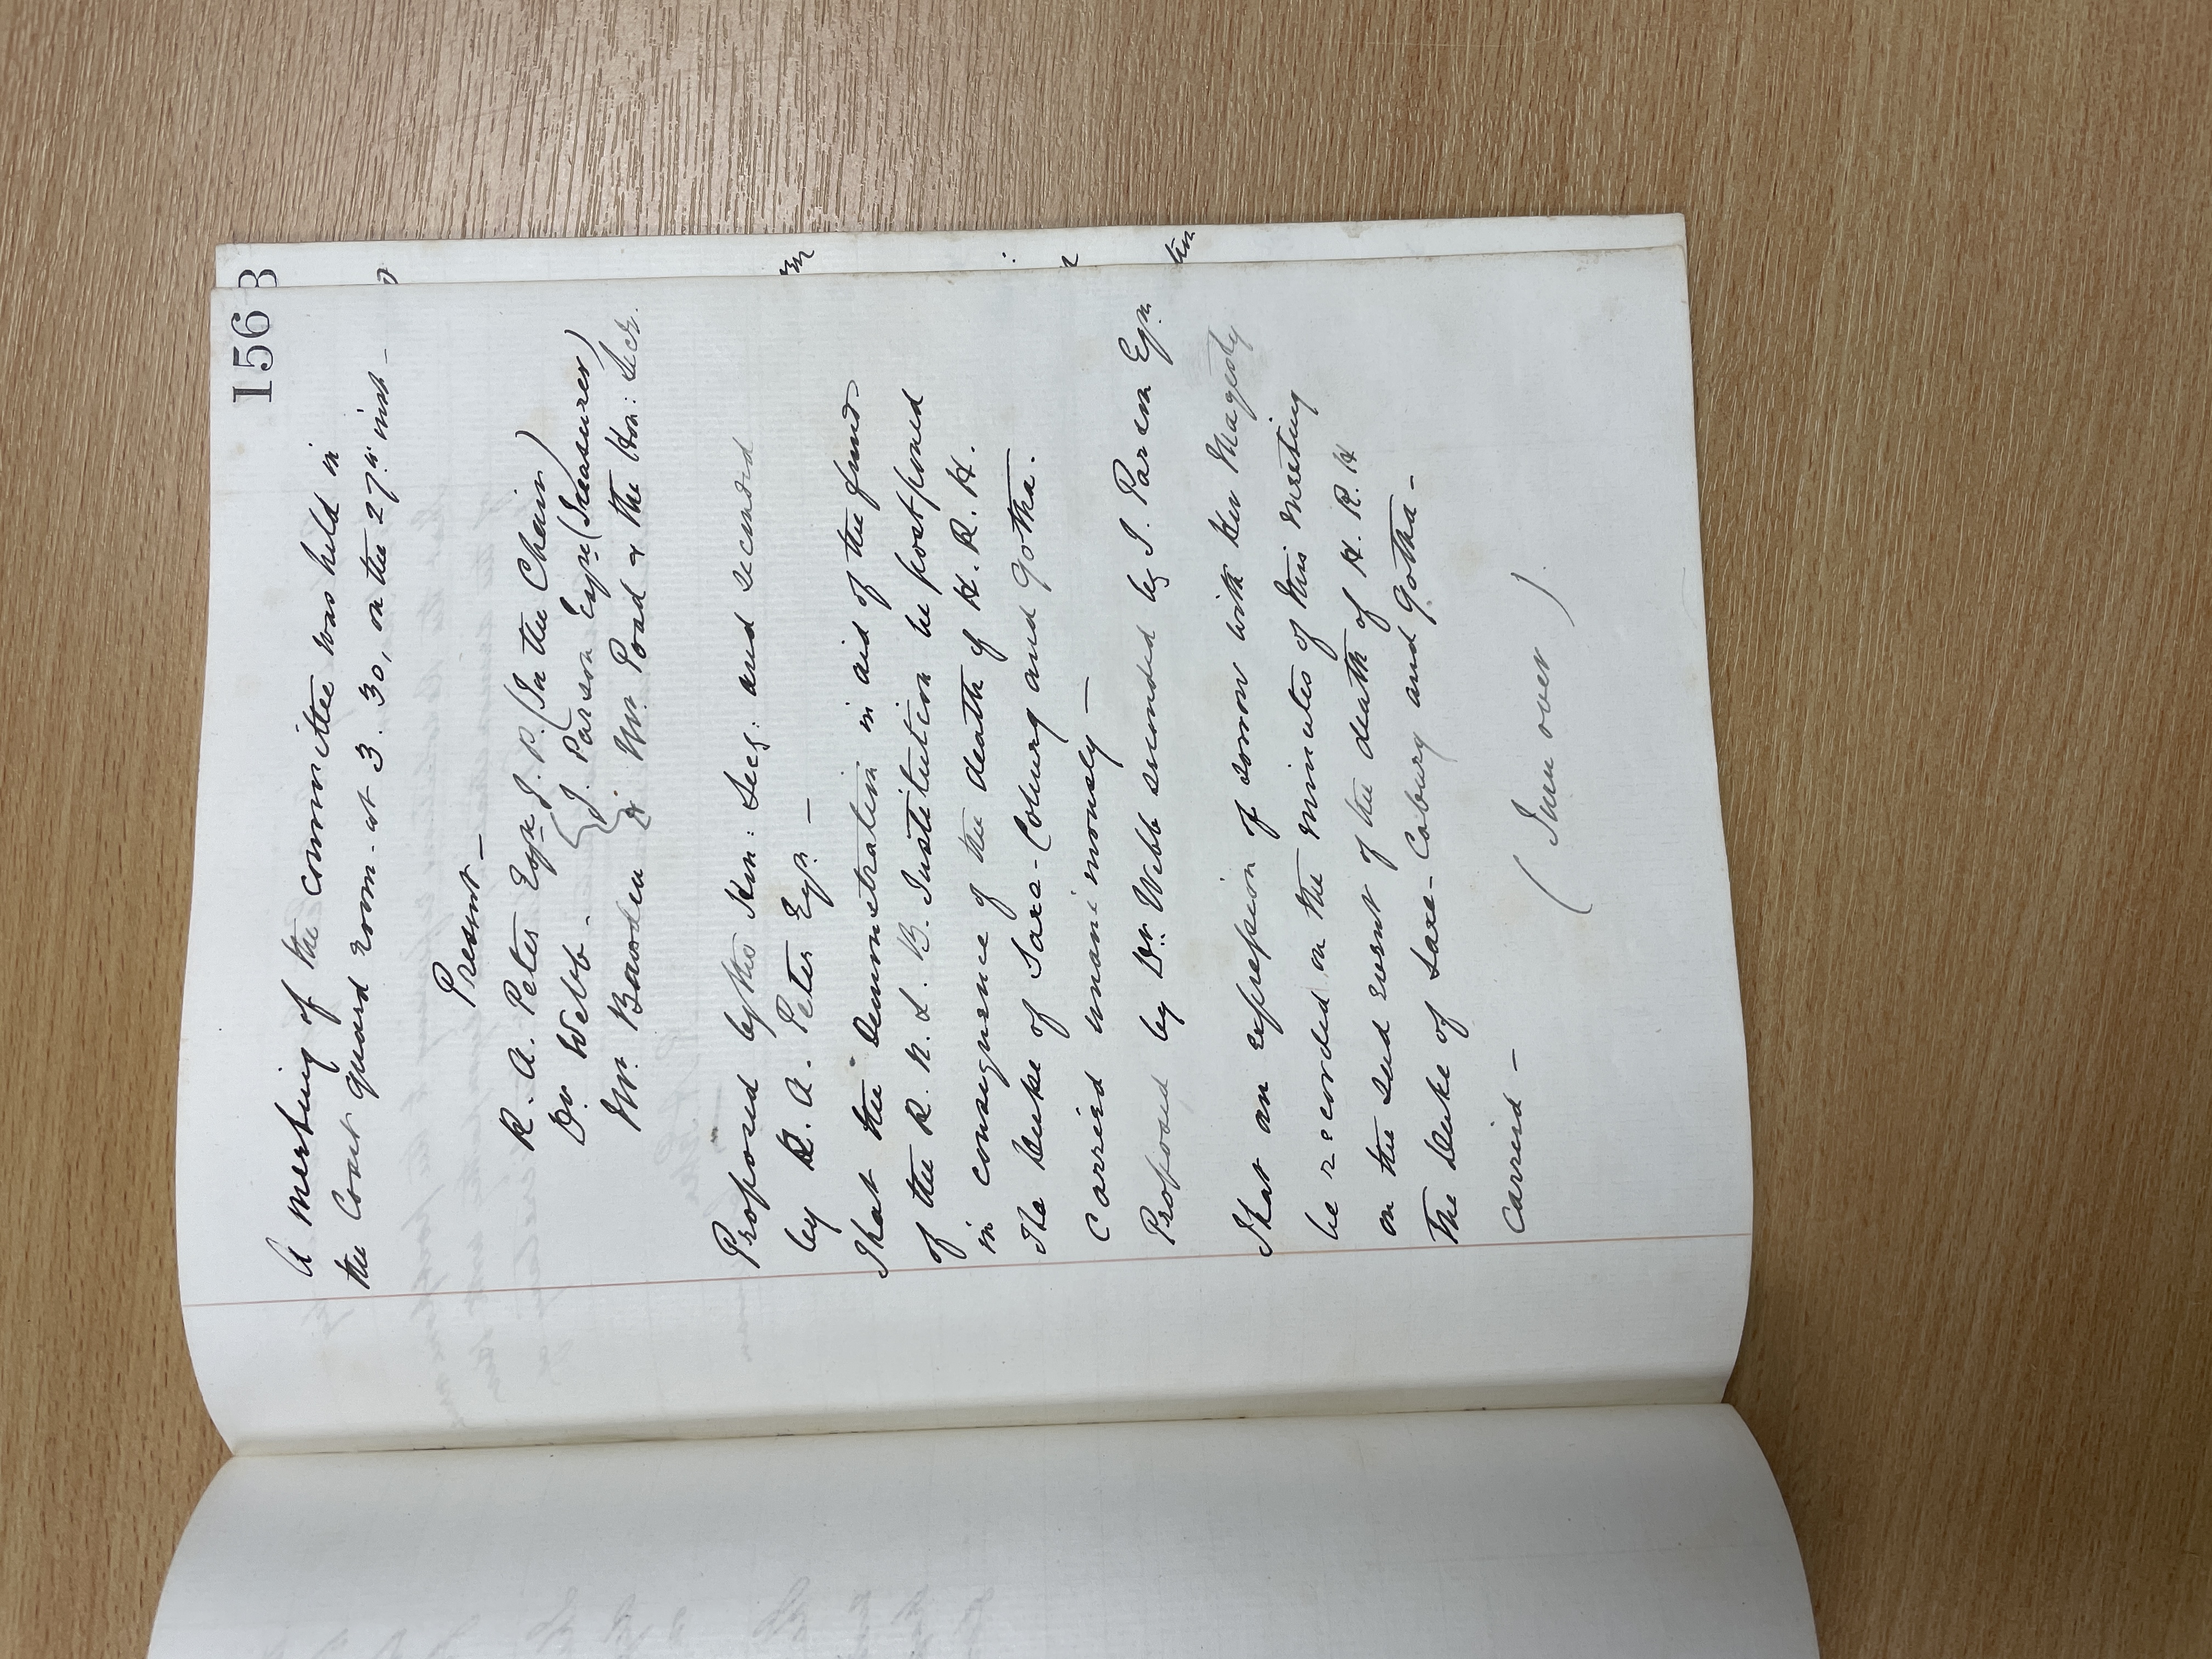 156
A meeting of the committee was held in
the Court guard room at 3.30, on the 27th inst –
Present –
R. A. Peter Esqre J. P. (In the Chair)
Dr Webb – J. Parson Esqre (Treasurer)
Mr. Bawden & Mr. Poad & the Hon: Secr.
Proposed by the Hon: Secy: and seconded
by R. A. Peter Esqr. –
That the Demonstration in aid of the funds
of the R. N. L. B. Institution be postponed
in consequence of the death of H. R. H.
The Duke of Saxe-Coburg and Gotha.
Carried unanimously –
Proposed by Dr. Webb seconded by J. Parson Esqr.
That an expression of sorrow with Her Magesty
be recorded on the minutes of this meeting
on the sad event of the death of H. R. H
The Duke of Saxe-Coburg and Gotha –
Carried –
(Turn over)